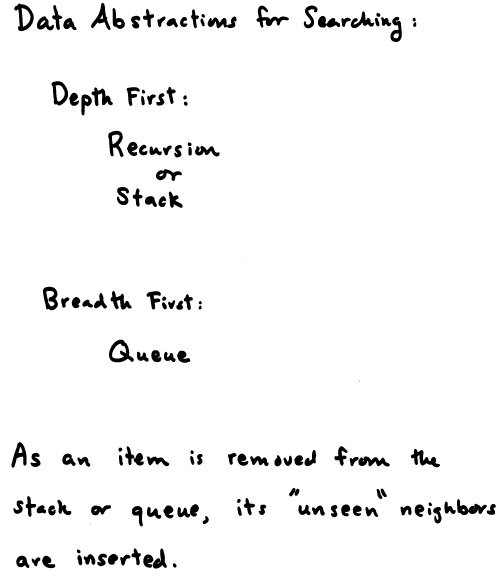 Data Abstractions for Searching:
Depth First:
Recursion
or
Stack
Breadth First:
Queue
As an item is removed from the
stack or queue, its "unseen" neighbors
are inserted.